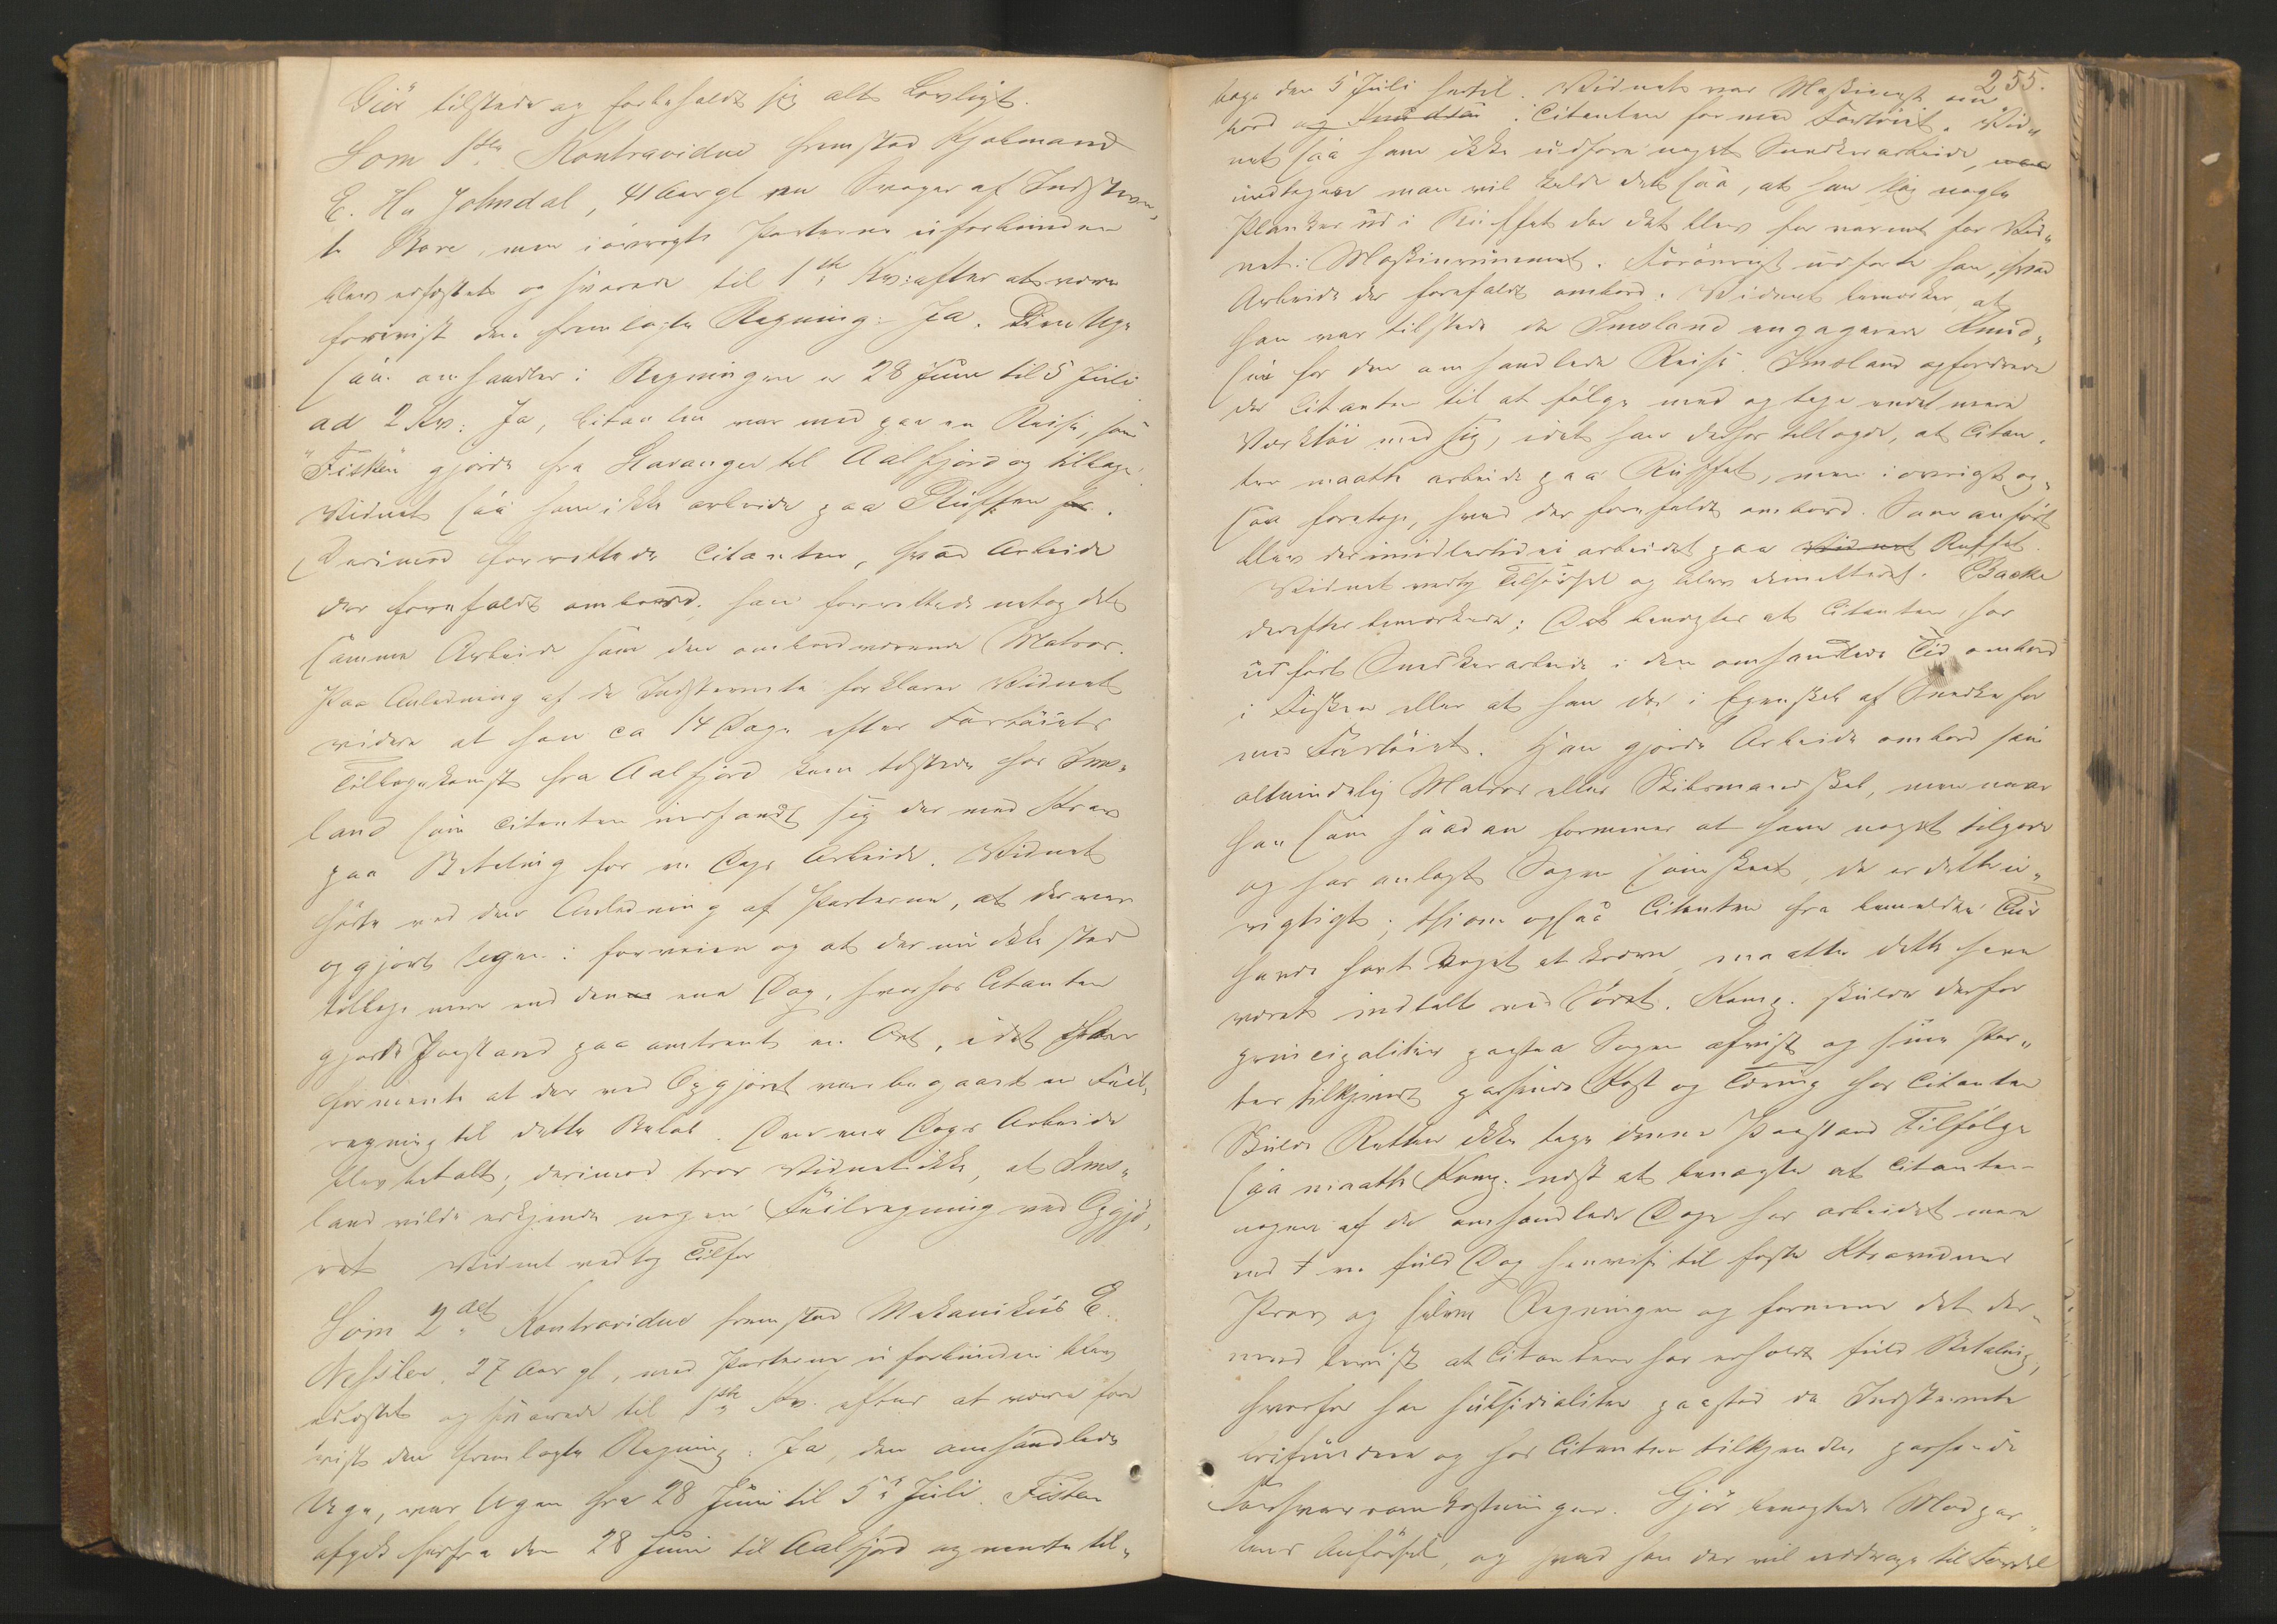 Giör tilstede og forbeholdt sig alt Lovligt.
Som 1ste Kontravidne fremstod Kjøbmand
E. H. Johndal, 41 Aar gl en Svoger af Indstevn„
te Bore, men iøvrigt Parterne uforbunden
blev edfæstet og svarede til 1ste Kv: efter at være
forevist den fremlagte Regning: Ja. Den Uge
som omhandles i Regningen er 28 Juni til 5 Juli
ad 2 Kv: Ja, Citanten var med paa en Reise, som
"Fisken" gjorde fra Stavanger til Aalfjord og tilbage.
Vidnet saa ham ikke arbeide paa Ruffen
Derimod forrettede Citanten, hvad Arbeide
der forefaldt ombord, han forrettede netop det
samme Arbeide som den ombordværende Matros.
Paa Anledning af de Indstevnte forklarer Vidnet
videre at han ca 14 Dage efter Fartøiets
Tilbagekomst fra Aalfjord kom tilstede hos Ims„
land som Citanten indfandt sig der med Krav
paa Betaling for en Dags Arbeide. Vidnet
hørte ved den Anledning af Parterne, at der var
opgjort Ugen i forveien og at der nu ikke stod
tilbage mere end den ene Dag, hvorfor Citanten
gjorde Paastand paa omtrent en Ort, idet han
formente at der ved Opgjøret var begaaet en Feil„
regning til dette Beløb. Den ene Dags Arbeide
blev betalt; derimod tror Vidnet ikke, at Ims„
land vilde erkjende nogen Feilregning ved Opgjø„
ret Vidnet vedtog Tilfør
Som 2det Kontravidne fremstod Mekanikus E.
Nessler, 27 Aar gl, med Parterne uforbunden blev
edfæstet og svarede til 1ste Kv. efter at være fore
vist den fremlagte Regning: Ja, den omhandlede
Uge, var Ugen fra 28 Juni til 5te Juli. Fisken
afgik herfra den 28 Juni til Aalfjord og vendte til„
255.
bage den 5 Juli hertil. Vidnet var Maskinist om
bord og Knudsen: Citanten for med Fartøiet. Vid„
net saa ham ikke udføre noget Snedkerarbeide,
medtagen man vil kalde det saa, at han slog nogle
Planker ud i Ruffet da det blev for varmt for Vid„
net i Maskinrummet. Forøvrigt udførte han, hvad
Arbeide der forefaldt ombord. Vidnet bemærker at
han var tilstede da Imsland engagerede Knud„
sen for den omhandlede Reise. Imsland opfordrede
da Citanten til at følge med og tage endel mere
Værktøi med sig, idet han derfor tillagde, at Citan„
ten maatte arbeide paa Ruffet, men iøvrigt og„
saa foretage, hvad der forefaldt ombord. Som anført
blev der imidlertid ei arbeidet paa Vidnet Ruffet.
Vidnet vedtog Tilførsel og blev dimitteret. Backe
derefter bemærkede: Det benægtes at Citanten har
udført Snedkerarbeide i den omhandlede Tid ombord
i Fisken eller at han der i Egenskab af Snedker for
med Fartøiet. Han gjorde Arbeide ombord som
almindelig Matros eller Skibsmandskab, men naar
han som saadan formener at have noget tilgode
og har anlagt Sagen som skeet, da er dette u„
rigtigt; thi om ogsaa Citanten fra bemeldte Tur
havde havt noget at kræve maatte dette have
været indtalt ved Søret. Komp. skulde derfor
principaliter paastaa Sagen afvist og sine Par„
ter tilkjendt passende Kost og Tæring hos Citanten
Skulde Retten ikke tage denne Paastand Tilfølge
saa maatte Komp. nøst at benægte at Citanten
nogen af de omhandlede Dage har arbeidet mere
end en fuld Dag henvise til første Ktravidnes
Prov og selve Regningen og formene det der„
med bevist at Citanten har erholdt fuld Betaling,
hvorfor han subsidialiter paastod de Indstevnte
frifundne og hos Citanten tilkjendte passende
Forsvarsomkostninger. Gjör benægtede Modpar„
tens Anførsel, og hvad han der vil uddrage til Fordel